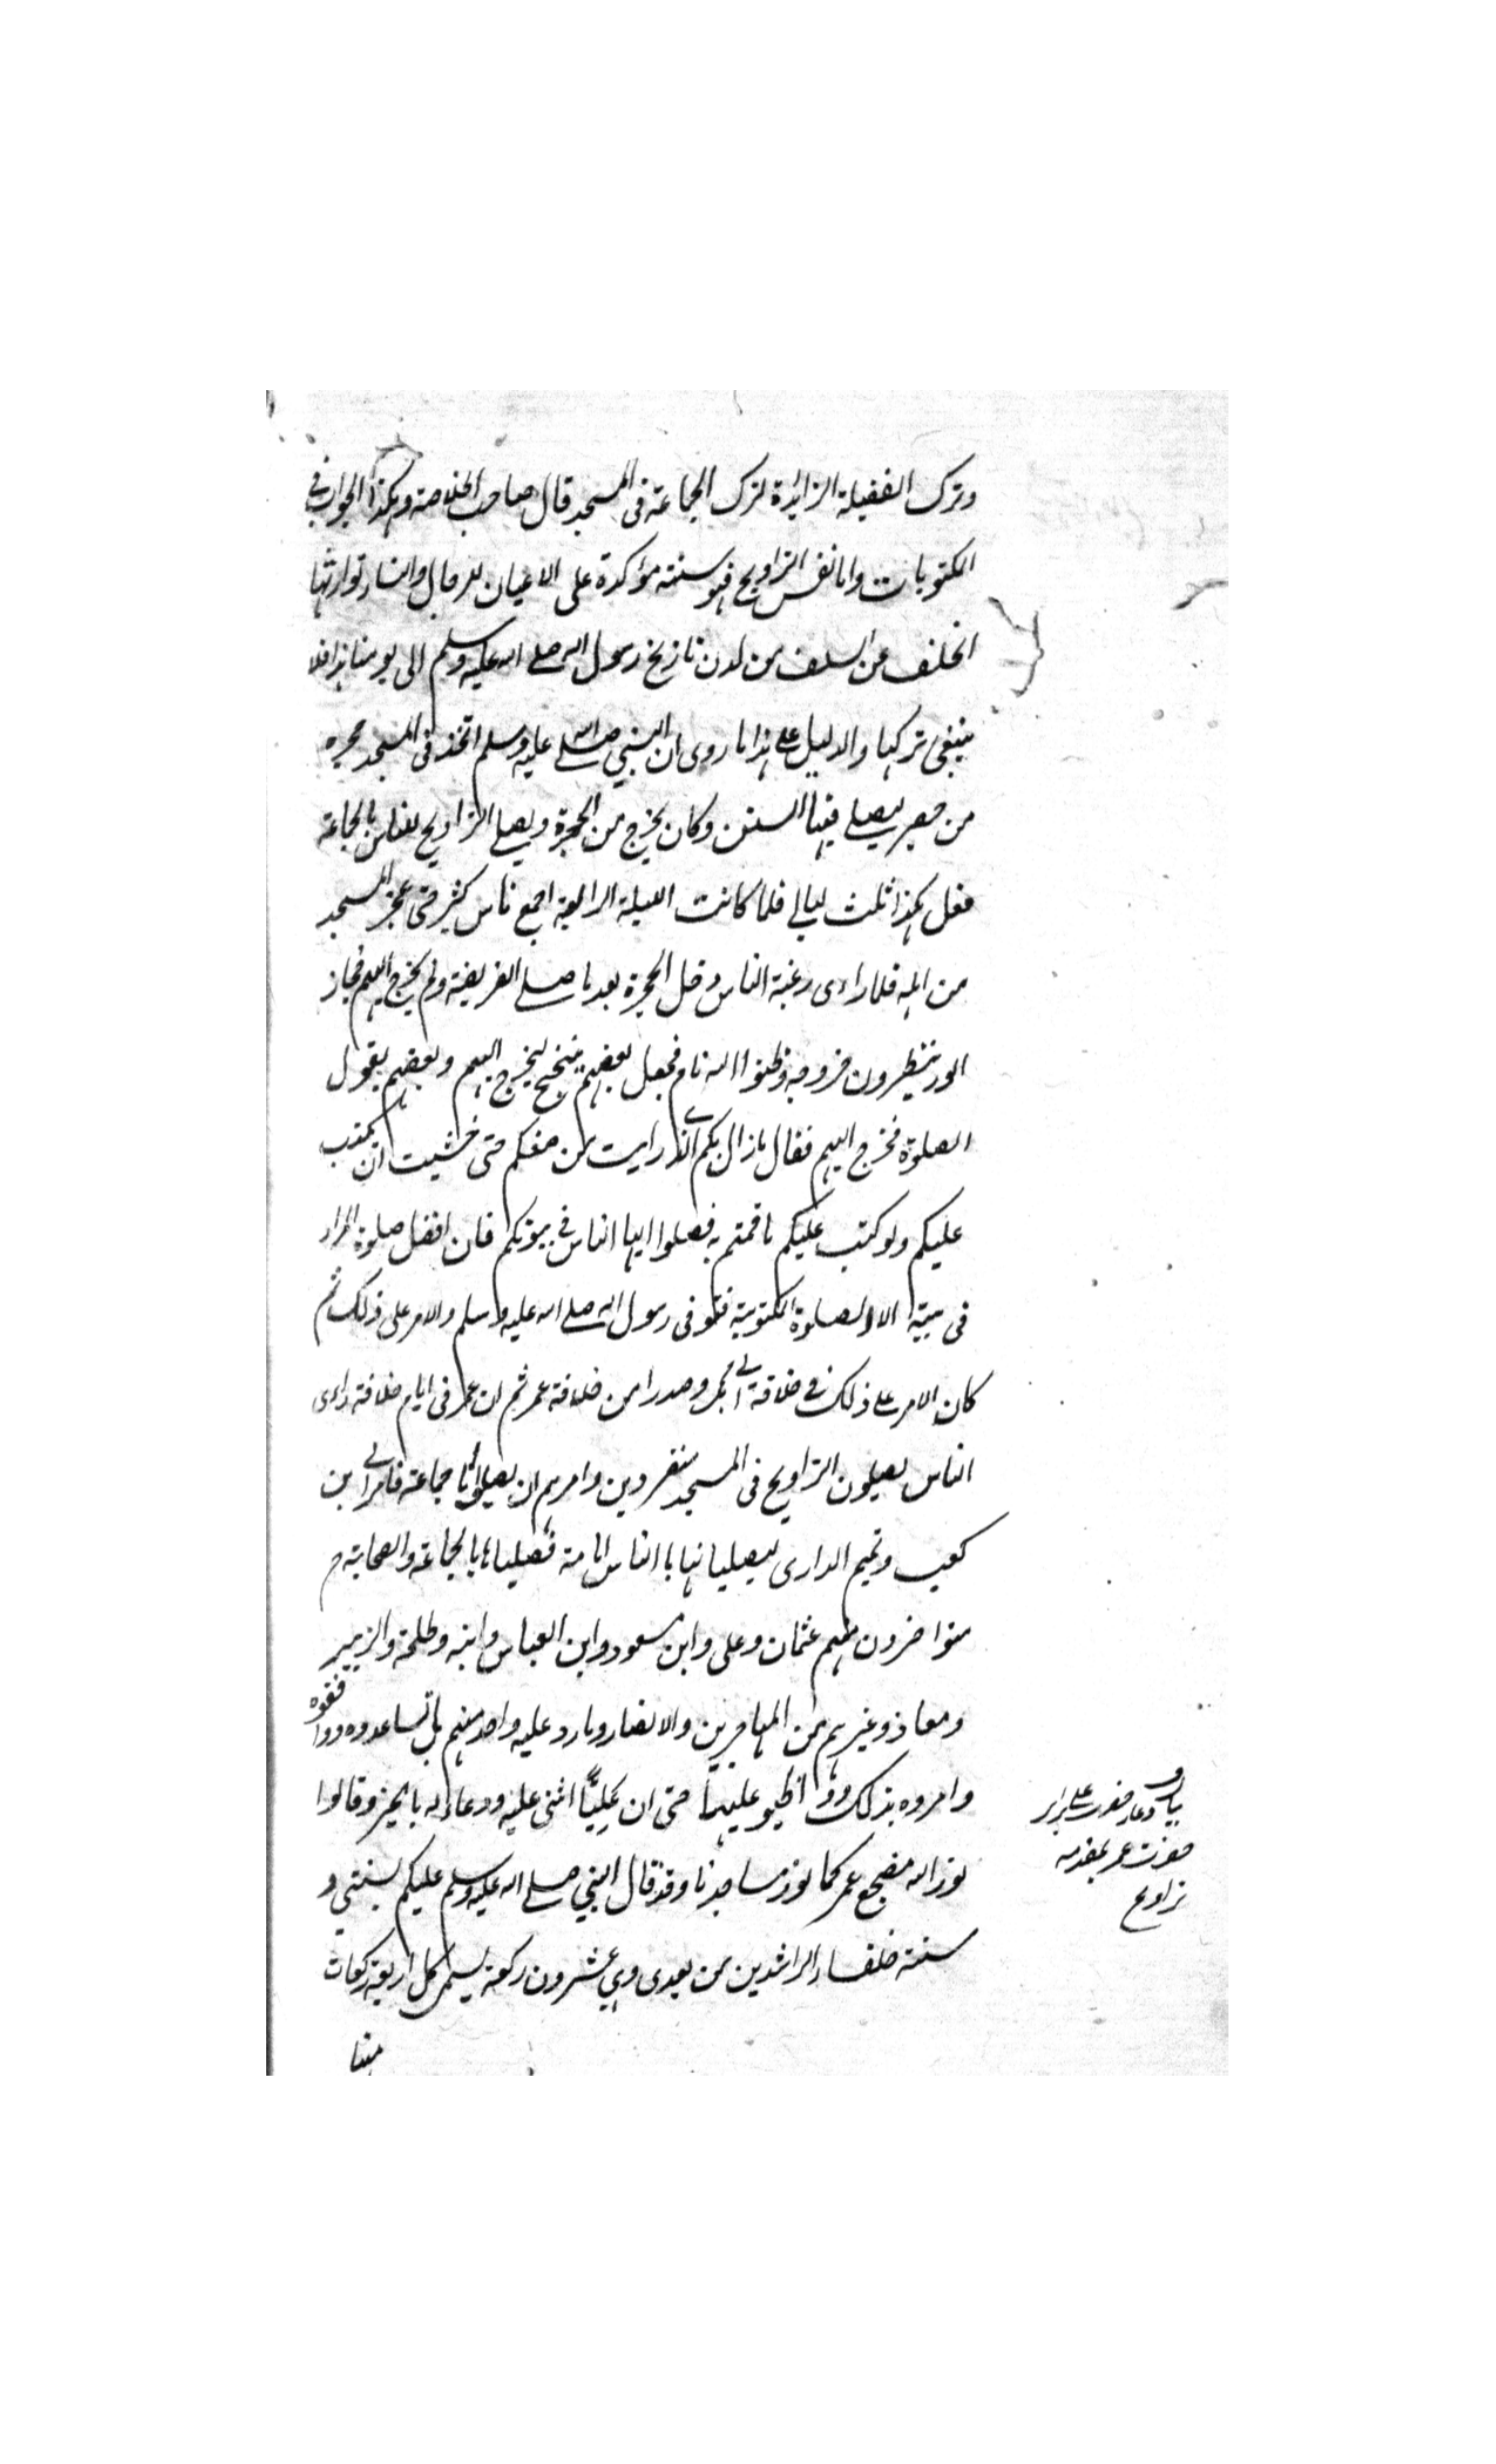 وترك الفضيلة الزائدة لترك الجماعة فى المسجد قال صاحب الخلاصة وهكذا الجواب فى
المكتوبات واما نفس التراويح فهو سنة مؤكدة على الاعيان للرجال والنساء توارثها
الخلف عن السلف من لدن تاريخ رسول الله صلى الله عليه وسلم الى يومنا هذا فلا
ينبغى تركها والدليل على هذا ما روى ان النبي صلى الله عليه وسلم اتخذ فى المسجد حجرة
من حصير ليصلى فيها السنن وكان يخرج من الحجرة ويصلى التراويح للناس بالجماعة
فعل هكذا ثلث ليالى فلما كانت الليلة الرابعة اجمع ناس كثير حتى عجز المسجد
من اهله فلما راى رغبة الناس دخل الحجرة بعد ما صلى الفريضة ولم يخرج اليهم
ينتظرون خروجه وظنوا انه نام فجعل بعضهم يتنحنح ليخرج اليهم وبعضهم يقول
الصلوة فخرج اليهم فقال ما زال بكم الذى رايت من صنعكم حتى خشيت ان يكتب
عليكم ولو كتب عليكم ما قمتم به فصلوا ايها الناس فى بيوتكم فان افضل صلوة المرء
فى بيته الا الصلوة المكتوبة فتوفى رسول الله صلى الله عليه وسلم والامر على ذلك ثم
كان الامر على ذلك فى خلافة ابى بكر وصدرا من خلافة عمر ثم ان عمر فى ايام خلافة راى
الناس يصلون التراويح فى المسجد منفردين وامرهم ان يصلوا جماعة فامر ابى بن
كعب وتميم الدارى ليصليا بالناس امامة فصليا بالجماعة والصحابة
متواخرون منهم عثمان وعلى وابن مسعود وابن العباس وابنه وطلحة والزبير
ومعاذ وغيرهم من المهاجرين والانصار وما رد عليه واحد منهم بل تساعدوه ووافقوه
وامروه بذلك وواظبو عليها حتى ان عليًّا اثنى عليه ودعاء له بالخير وقالوا
نور الله مضجع عمر كما نور مساجدنا وقد قال النبي صلى الله عليه وسلم عليكم بسنتي و
سنة خلفاء الراشدين من بعدى وهى عشرون ركعة يسمى كل اربعة ركعات
منها
بيان دعاء حضرت على براى
حضرت عمر بمقدمه
تراويح